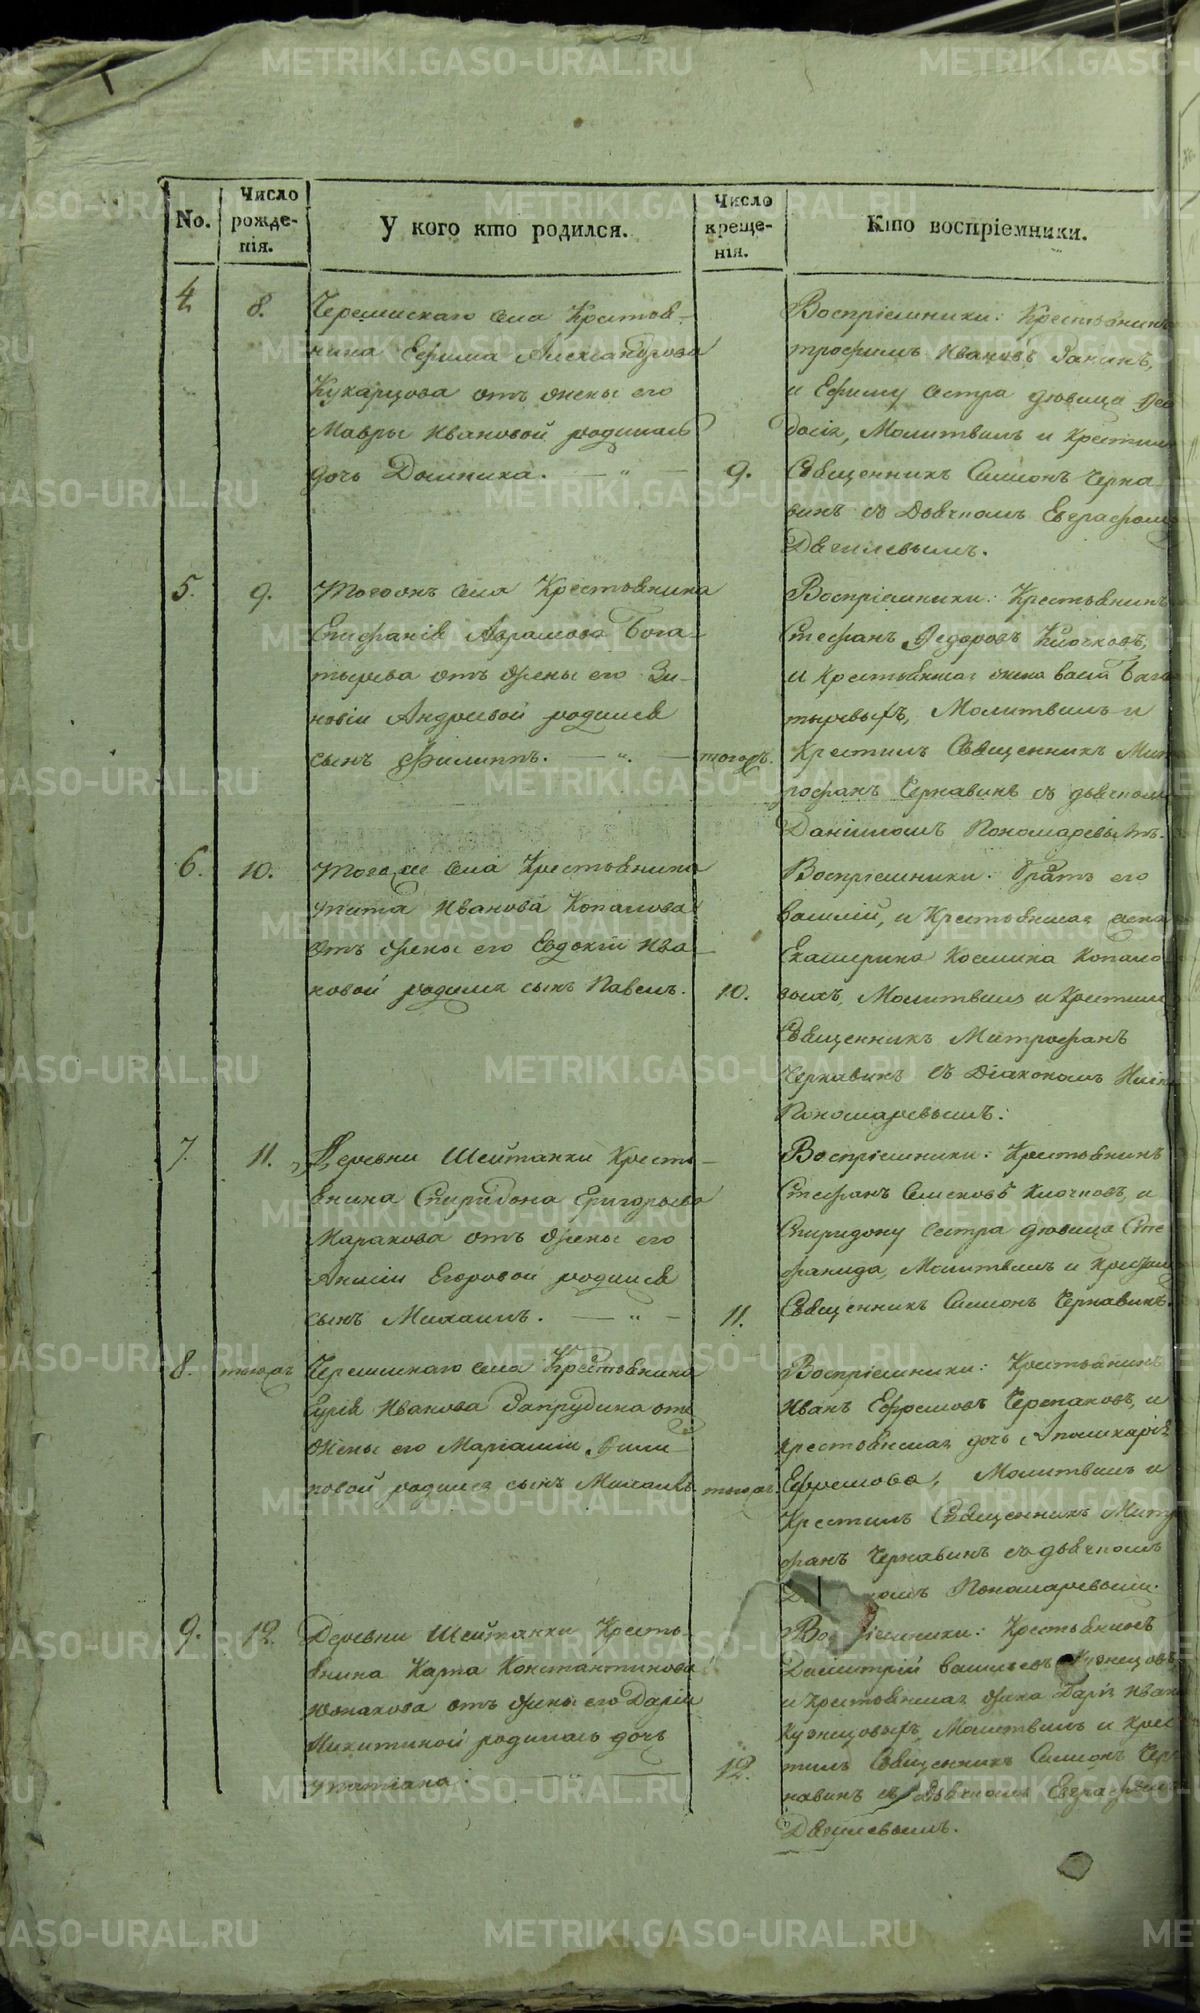 No.
Число рожде-нія.
У кого кто родился.
Число креще-нія.
Кто воспріемники.
4
8.
Черемискаго села Крестьян-
нина Ефима Александрова
Кухарцова отъ жены его
Мавры Ивановой родилась
дочь Домника.
9.
Воспріемники: Крестьянинъ
трофимъ Ивановъ
и Ефиму сестра дѣвица Ѳео
досія, Молитвилъ и Крестилъ
Священникъ Симионъ Черна
винъ съ Дьячкомъ Евграфомъ
5.
9.
Тогожъ села Крестьянина
Епифанія Аврамова Бога-
тырева отъ жены его Зи-
новіи Андреевой родился
сынъ Филиппъ.
тогожъ.
Воспріемники: Крестьянинъ
Стефанъ Ѳедоровъ Клочковъ,
и Крестьянская жена Бога
тыревыхъ, Молитвилъ и
Крестилъ Священникъ Мит
рофанъ Чернавинъ съ дьячкомъ
Даніиломъ Пономаревымъ.
6.
10.
Тогоже села Крестьянина
тита Иванова Копалова
отъ жены его Евдокіи Ива
новой родился сынъ Павелъ.
10.
Воспріемники: братъ его
василій, и Крестьянская жена
Екатерина Козмина Копало
выхъ, Молитвилъ и Крестилъ
Священникъ Митрофанъ
Чернавинъ съ Діакономъ
Пономаревымъ.
7.
11.
Деревни Шайтанки Кресть-
янина Спиридона Григорьева
Маракова отъ жены его
Анисіи Егоровой родился
сынъ Михаилъ.
11.
Воспріемники: Крестьянинъ
Стефанъ Клочковъ, и
Спиридону сестра дѣвица Сте
фанида, Молитвилъ и Крестилъ
Священникъ Симионъ Чернавинъ.
8.
тогожъ
Черемискаго села Крестьянина
Гурія Иванова Запрудина отъ
жены его Маріамніи
повой родился сынъ Михаилъ.
тогожъ.
Воспріемники: Крестьянинъ
Иванъ Ефремовъ Черепановъ, и
крестьянская дочь Аполинарія
Ефремова, Молитвилъ и
Крестилъ Священникъ Митро
фанъ Чернавинъ съ дьячкомъ
Пономаревымъ.
9.
12.
Деревни Шайтанки Кресть-
янина Карпа Константинова
Южакова отъ жены его Дарьи
Никитиной родилась дочь
татіана.
12.
Воспріемники: Крестьянинъ
Димитрій васильевъ Кузнецовъ,
и Крестьянская жена Дарья Иван
Кузнецовыхъ, Молитвилъ и Крес
тилъ Священникъ Симионъ Чер
навинъ съ Дьячкомъ Евграфомъ
METRIKI.GASO-URAL.RU